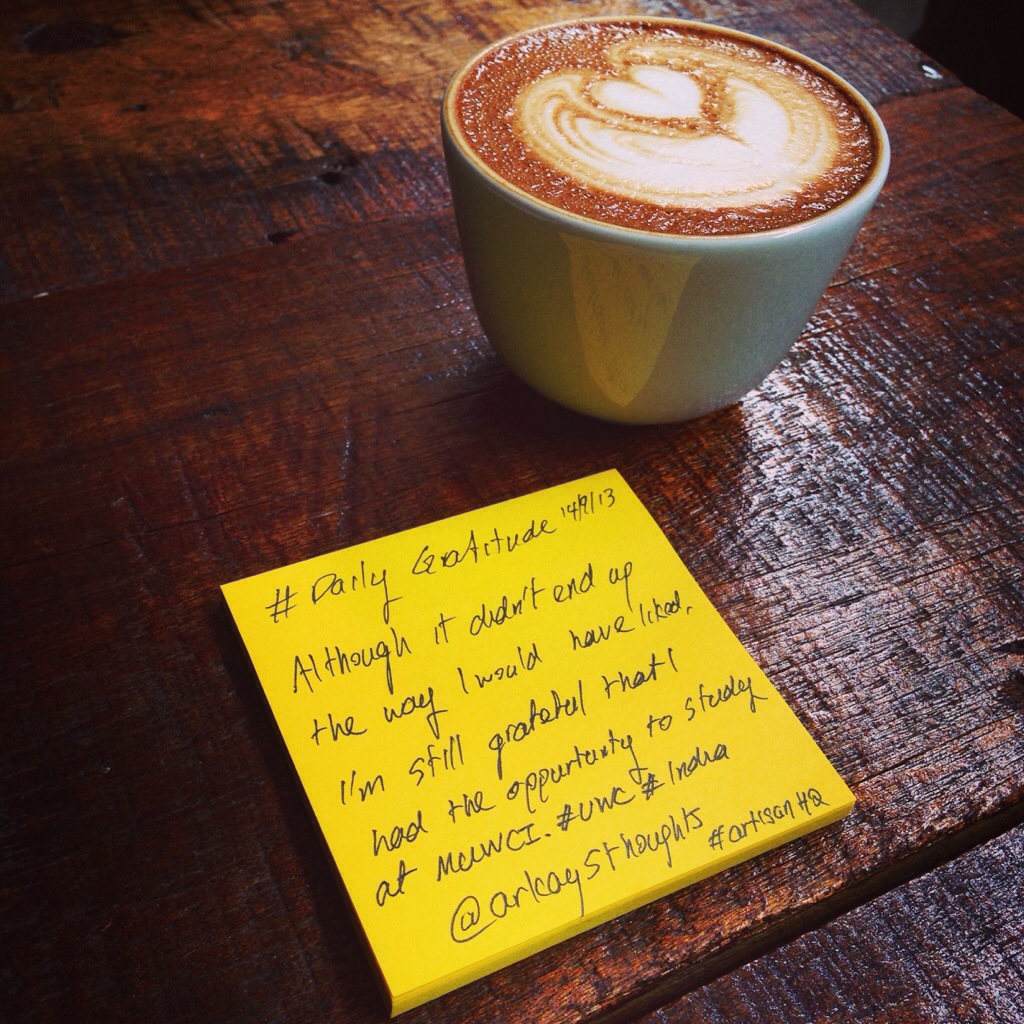 # Daily Gratitude 14/9/13
Although it didn't end up
the way I would have liked,
I'm still grateful that I
had the oppurtunity to study
at MUWCI. #UWC #India
@arkaysthoughts #artisanHQ